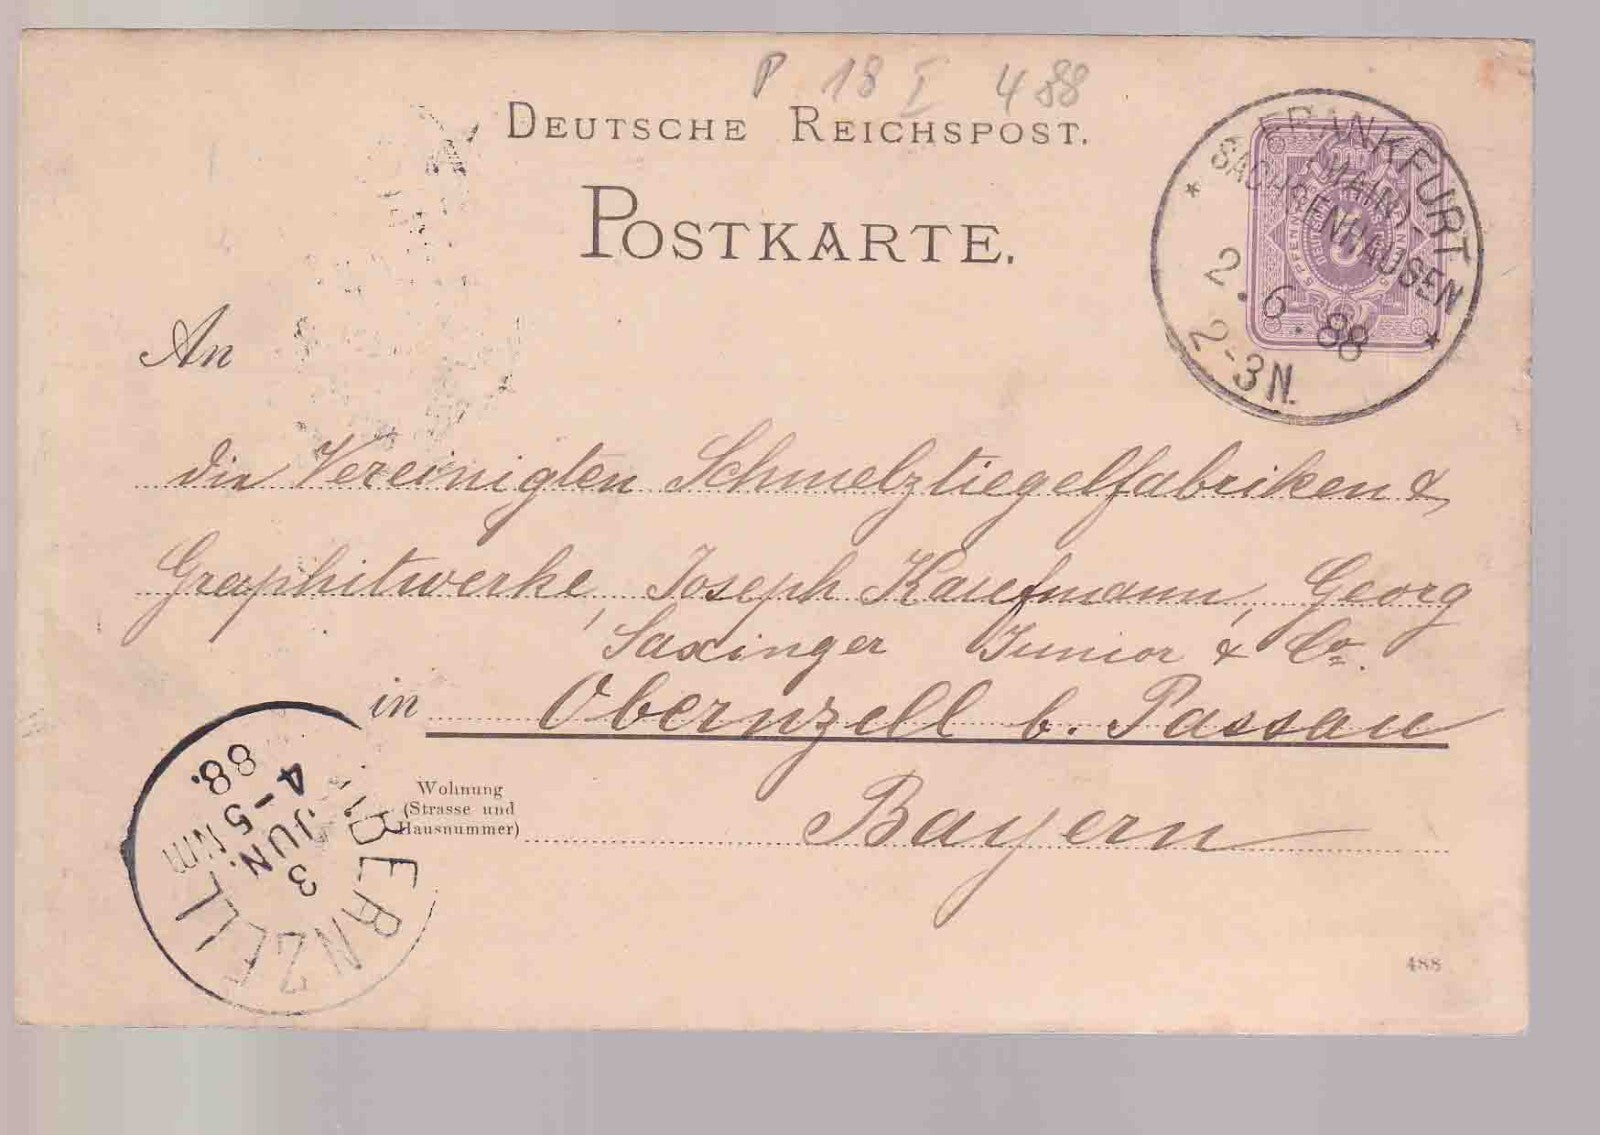 P 18 I 4 88
DEUTSCHE REICHSPOST.
POSTKARTE.
FRANKFURT
(MAIN)-
SACHSENHAUSEN
2.6.88
2-3N.
An
die Vereinigten Schmelztiegelfabriken &
Graphitwerke, Joseph Kaufmann, Georg
Saxinger Junior & Co.
in Obernzell b. Passau
Wohnung
(Strasse und
Hausnummer)
Bayern
OBERNZELL
3
JUN.
4-5 Nm
88.
488